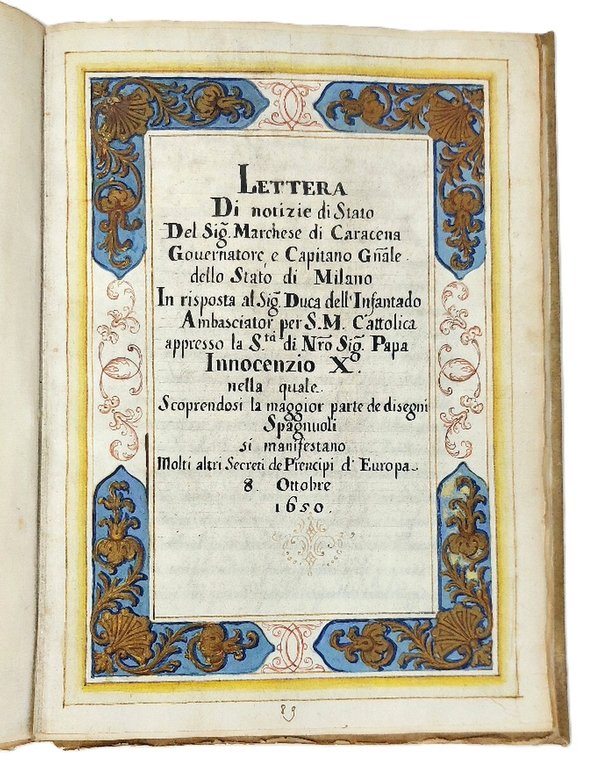 LETTERA
Di notizie di Stato
Del Sig. Marchese di Caracena
Governatore, e Capitano Gnãle
dello Stato di Milano
In risposta al Sig. Duca dell'Infantado
Ambasciator per S.M. Cattolica
appresso la S.tà di Nr̃o Sig. Papa
Innocenzio X.
nella quale
Scoprendosi la maggior parte de disegni
Spagnuoli
si manifestano
Molti altri Secreti de Prencipi d'Europa
8 Ottobre
1650.
89